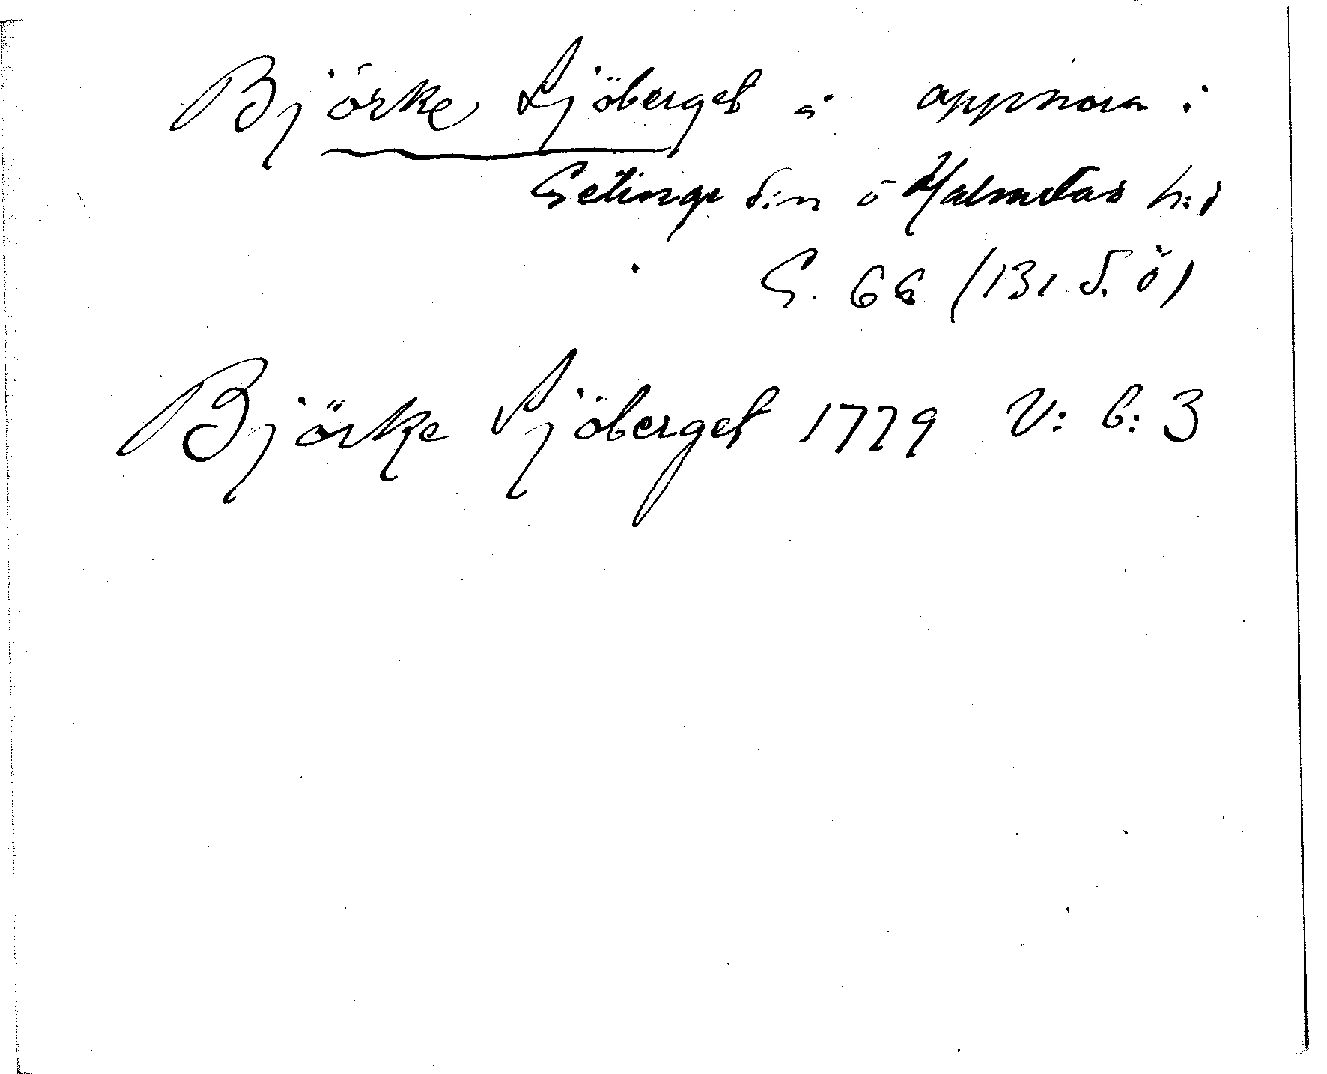 Björke Sjöberget å Appnora i
Getinge s:n o Halmstad h:d
G. 66 (131 S. ö)
Björke Sjöberget 1779 V: b: 3